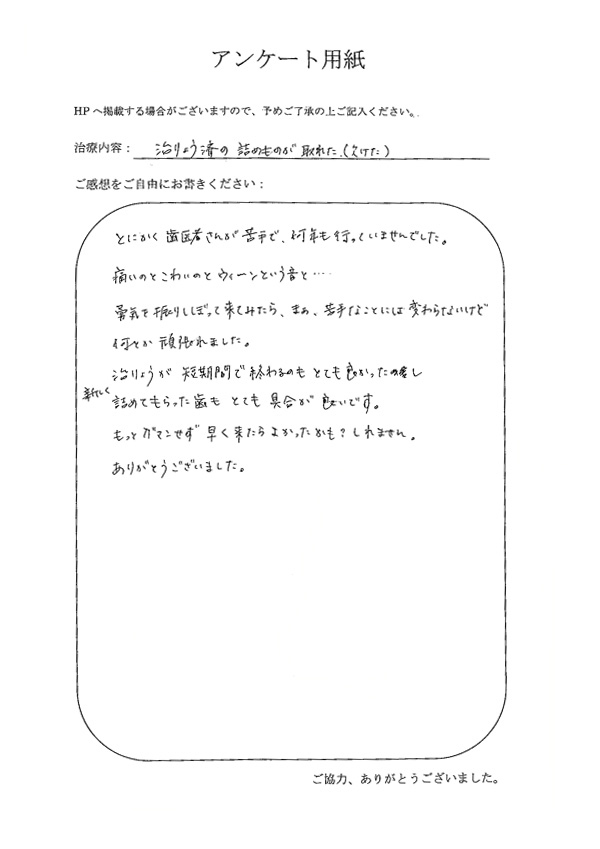 アンケート用紙
HPへ掲載する場合がございますので、予めご了承の上ご記入ください。
治療内容： 治りょう済の 詰めものが 取れた.(欠けた)
ご感想をご自由にお書きください：
とにかく 歯医者さんが 苦手で、何年も行っていませんでした。
痛いのと こわいのと ウィーンという音と‥‥
勇気を振りしぼって来てみたら、まぁ、苦手なことには変わらないけど
何とか 頑張れました。
治りょうが 短期間で 終わるのも とても 良かったし
新しく
詰めてもらった歯も とても 具合が 良いです。
もっと ガマンせず 早く来たらよかったかも？しれません。
ありがとうございました。
ご協力、ありがとうございました。